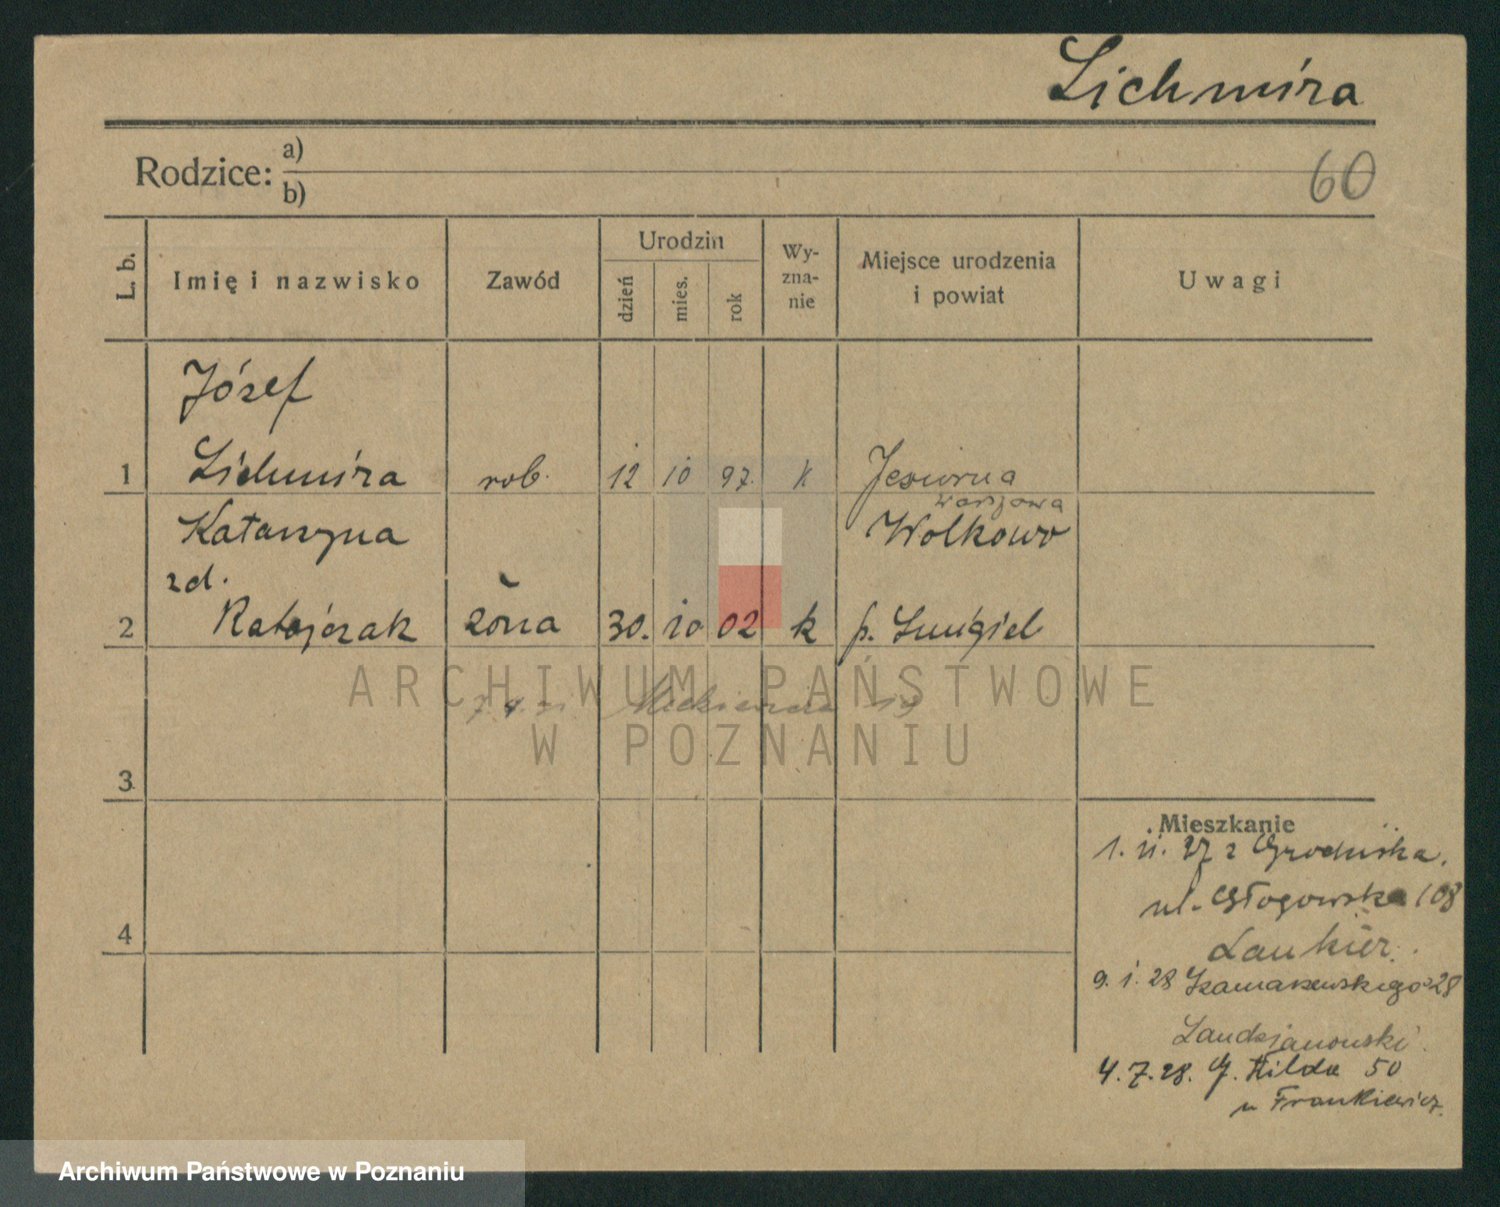 Lichmira
Rodzice: a)
b)
60
L. b.
Imię i nazwisko
Zawód
Urodzin
dzień
mies.
rok
Wy-
zna-
nie
Miejsce urodzenia
i powiat
Uwagi
Józef
1 Lichmira rob. 12 10 97. k Jeziorna
warszawa
Katarzyna Wolkowo
zd.
2 Ratajczak żona 30. 10 02 k p. Śmigiel
ARCHIWUM PAŃSTWOWE
W POZNANIU
3
4
Mieszkanie
1. 11. 27 z Grodziska.
ul. Głogowska 108
Laukier.
9. 1. 28 Szamarzewskiego 28
4.7.28. G. Wilda 50
u Frankiewicz.
Archiwum Państwowe w Poznaniu